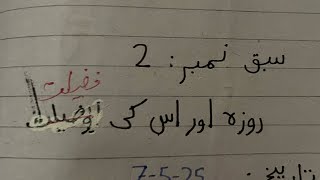 سبق نمبر: 2
فضیلت
روزہ اور اس کی
تاریخ: 7-5-25